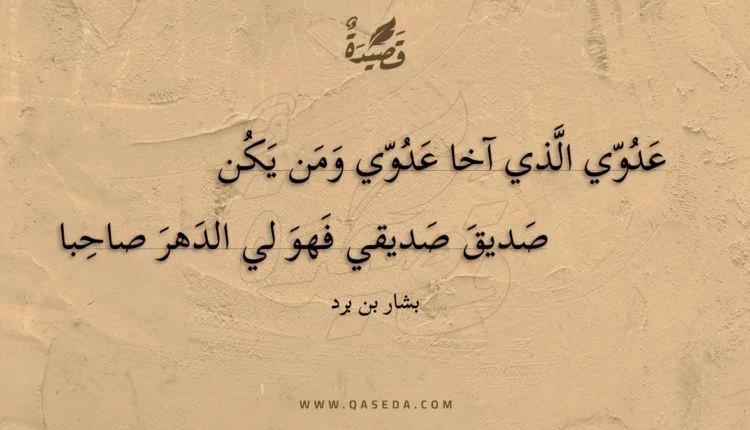 قَصِيدَةٌ
عَدُوّي الَّذي آخا عَدُوّي وَمَن يَكُن
صَديقَ صَديقي فَهوَ لي الدَهرَ صاحِبا
بشار بن برد
WWW.QASEDA.COM